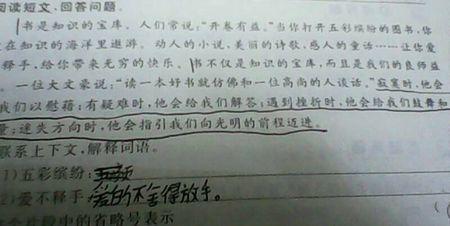 阅读短文,回答问题。
书是知识的宝库。人们常说:“开卷有益。”当你打开五彩缤纷的图书,你
在知识的海洋里遨游。动人的小说,美丽的诗歌,感人的童话……让你爱
释手,给你带来无穷的快乐。书不仅是知识的宝库,而且是我们的良师益
。一位大文豪说:“读一本好书就仿佛和一位高尚的人谈话。”寂寞时,他会
我们以慰藉;有疑难时,他会给我们解答;遇到挫折时,他会给我们鼓舞和
量;迷失方向时,他会指引我们向光明的前程迈进。
联系上下文,解释词语。
(1)五彩缤纷:
(2)爱不释手:爱的不舍得放手。
片段中的省略号表示